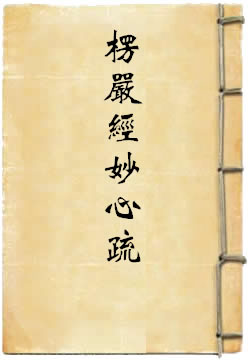 楞嚴經妙心疏